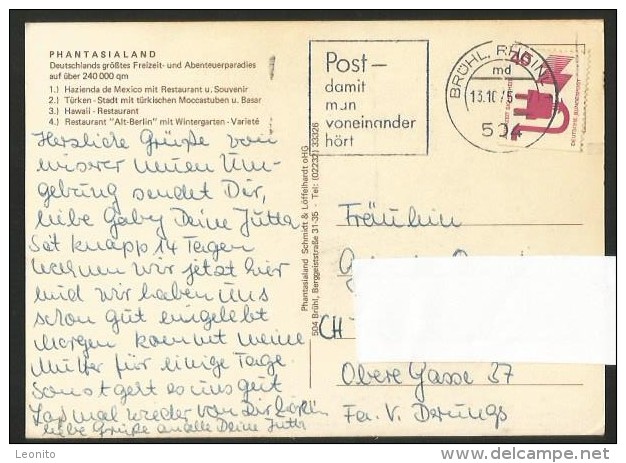 PHANTASIALAND
Deutschlands größtes Freizeit- und Abenteuerparadies
auf über 240 000 qm
1.) Hazienda de Mexico mit Restaurant u. Souvenir
2.) Türken-Stadt mit türkischen Moccastuben u. Basar
3.) Hawaii - Restaurant
4.) Restaurant "Alt-Berlin" mit Wintergarten - Varieté
Herzliche Grüße von
unserer neuen Um-
gebung sendet Dir,
liebe Gaby Deine Jutta
Seit knapp 14 Tagen
wohnen wir jetzt hier
und wir haben uns
schon gut eingelebt
Morgen kommt meine
Mutter für einige Tage
Sonst geht es uns gut
Laß mal wieder von Dir hören
liebe Grüße an alle Deine Jutta
Phantasialand Schmidt & Löffelhardt oHG
504 Brühl, Berggeiststraße 31-35 - Tel: (02232) 33326
Post —
damit
man
voneinander
hört
BRÜHL, RHEINL
md
13.10.75
504
40
DEUTSCHE BUNDESPOST
Fräulein
CH
Obere Gasse 37
Fa. V. Derungs
Leonito
delcampe.net